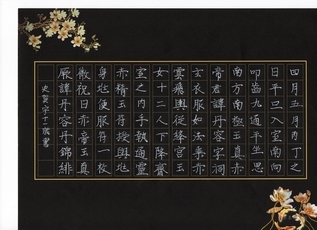 四月五月丙丁之
日平旦入室南向
叩齒九通平坐思
南方南極玉真赤
帝君諱丹容字洞
玄衣服如法乘赤
雲飛輿從絳宮玉
女十二人下降齋
室之內手執通靈
赤精玉符授與
身 便服符一枚
微祝曰赤帝玉真
厥諱丹容丹錦緋